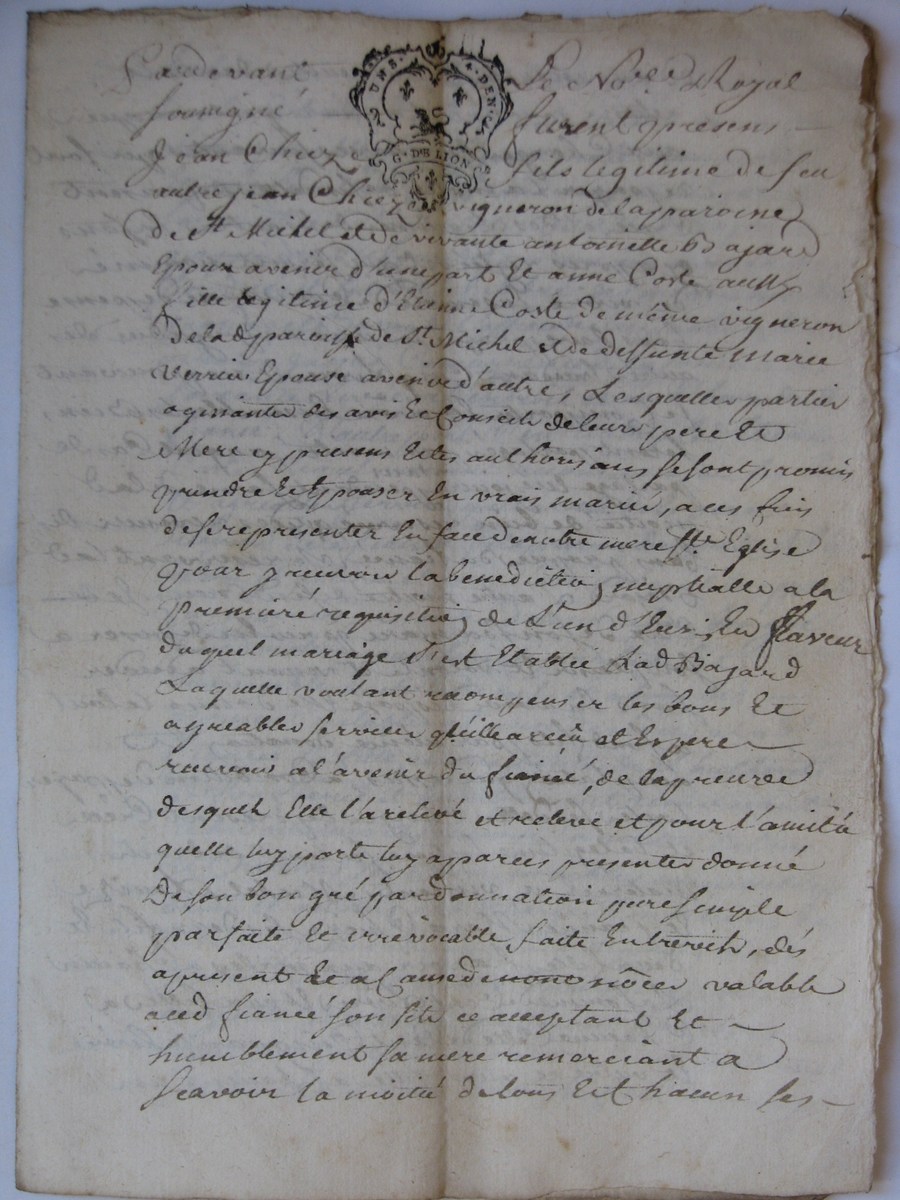 Pardevant Le No.re Royal
Soussigné furent presens
Jean Chieze fils legitime de feu
autre jean Chieze vigneron de la paroisse
de St Michel et de vivante antoinette Bajard
Epoux avenir d'une part Et anne Coste aussy
fille legitime d'Etienne Coste de même vigneron
de lad paroisse de St. Michel et de deffunte marie
Epouse avenir d'autre, Lesquelles parties
des avis Et Conseils de leurs pere Et
Mere cy presens Et les authorisans se sont promis
prendre Et Epouser En vrais mariés, a ces fins
de se representer En face de notre mere Ste Eglise
pour y recevoir la benediction nuptialle a la
premiere requisition de L'un d'Eux, En faveur
duquel mariage s'est Etablie Lad Bajard
Laquelle voulant recompenser les bons Et
agreables services qu'elle a reçu et Espere
recevoir a l'avenir du fiancé, de la preuve
desquels Elle l'a relevé et releve et pour l'amitié
quelle luy porte luy a par ces presentes donné
de son bon gré par donnation pure simple
parfaite Et irrévocable faite Entrevifs, dés
apresent Et a Cause de noces valable
aud fiancé son fils ce acceptant Et
humblement sa mere remerciant a
Scavoir la moitié de tous Et chacun ses
UNS. 4. DEN.
G. DE LION